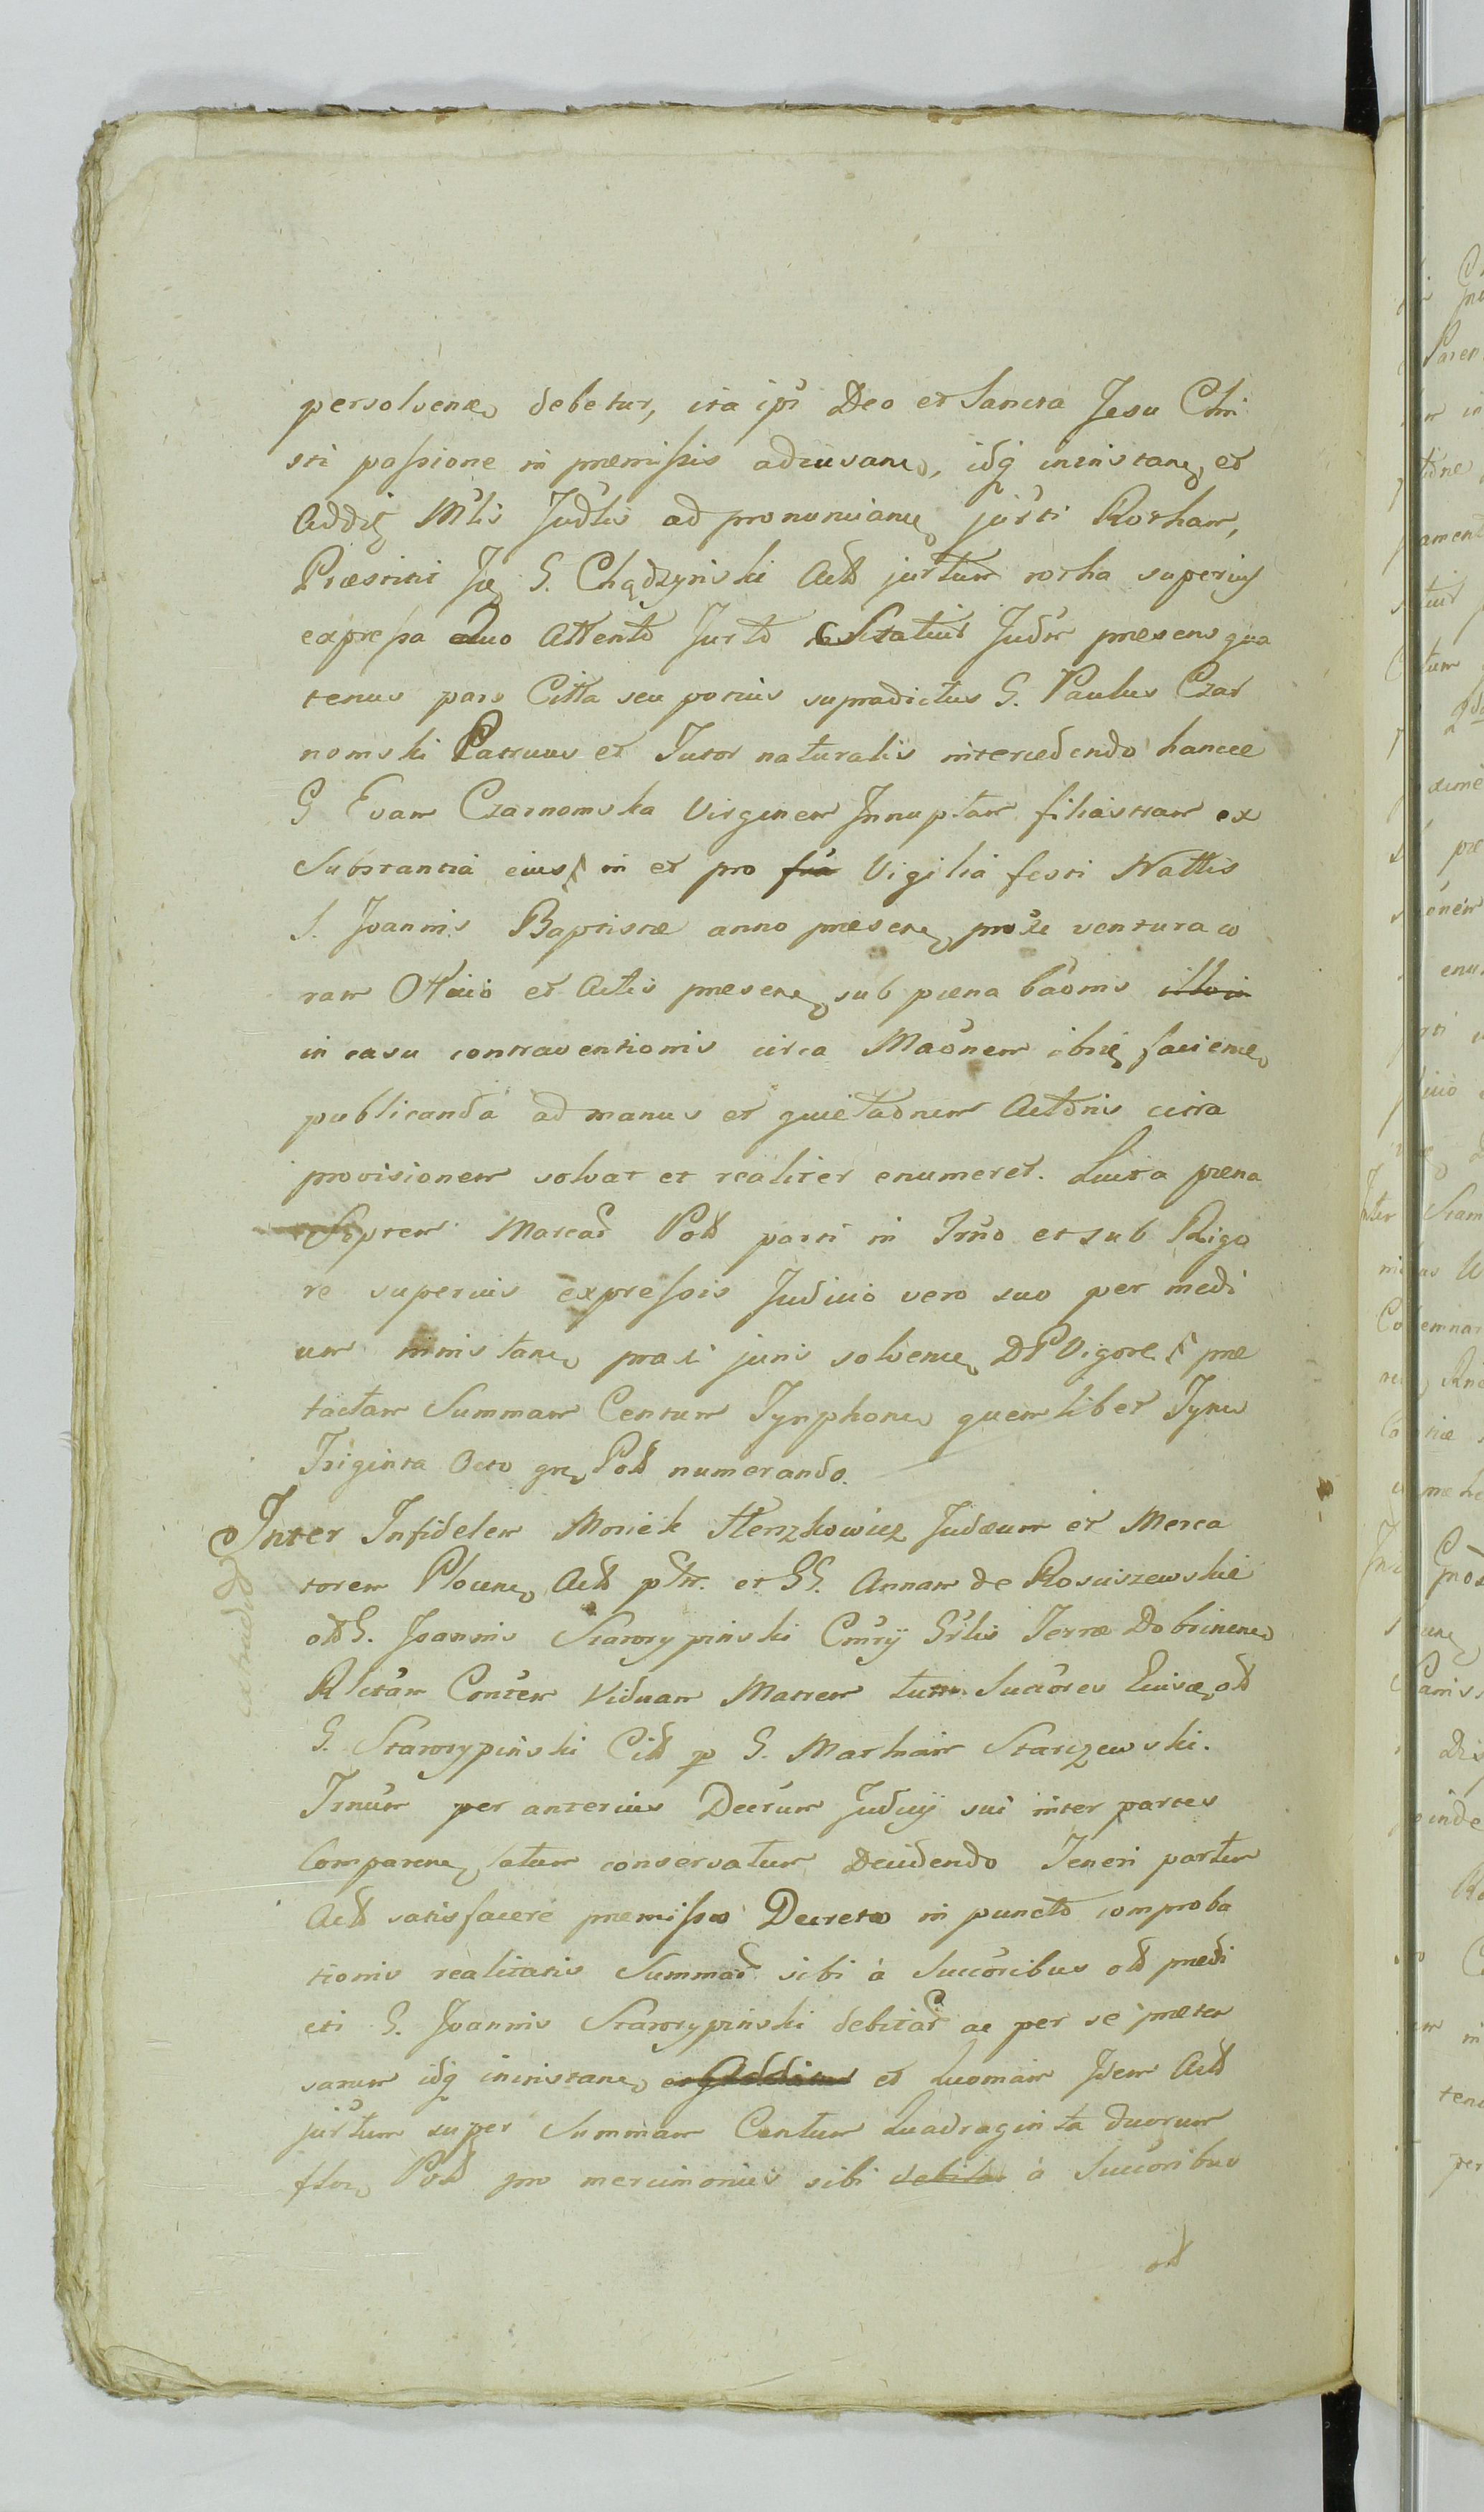 persolvenᷤ debetur, ita ipī Deo et Sancta Jesu Chri
sti passione in præmissis adiuvane, idq ininstanᷤ et
addiᷤ Mlis Judlis ad pronuncianᷤ jurti Rotham,
Præstitit Jᷤ G. Chądzyński Act jurtum rotha superius
expressa Quo Attento Jurto Statuit Judm præsens qua
tenus pars Citta seu potius supradictus G. Paulus Czar
nomski Patruus et Tutor naturalis intercedendo hancce
G Evam Czarnomska Virginem Innuptam filiastram ex
Substantia eius in et pro sua Vigilia festi Nattis
S. Joannis Baptistæ anno præsenᷤ proxe ventura co
ram Offcio et Actis præsenᷤ sub pæna baonis
in casu contraventionis circa Maonem ibiᷤ faciene
publicanda ad manus et quietaonem Actoris citra
provisionem solvat et realiter enumeret. Luita pæna
Septem Marcar Pol parti in Trno et sub Rigo
re superius expressis Judicio vero suo per medi
um ministane praxi juris solvene DP Vigore præ
tactam Summam Centum Tynphone quemlibet Tyne
Triginta Octo grᷤ Pol numerando.
Inter Infidelem Moniek Herszkowicz Judæum et Merca
torem Plocene Act ptr. et GG. Annam de Rosciszewskie
olt G. Joannis Starorypinski Cmrij Grlis Terræ Dobrinene
Rlictam Contem Viduam Matrem tum Succores Eiusᷤ olt
G. Starorypiński Cit p G. Mathiam Starczewski.
Trnum per anterius Decrum Judicij sui inter partes
Comparene latum conservatum Decidendo Teneri partem
Act satisfacere præmisso Decreto in puncto comproba
tionis realitatis Summar sibi à Succoribus olt prædi
cti G. Joannis Starorypiński debitar ac per se præten
sarum idq ininstane et Addiᷤ et Quoniam Idem Act
jurtum super Summam Centum Quadraginta duorum
flore Pol pro mercimoniis sibi debitam à Succoribus
olt